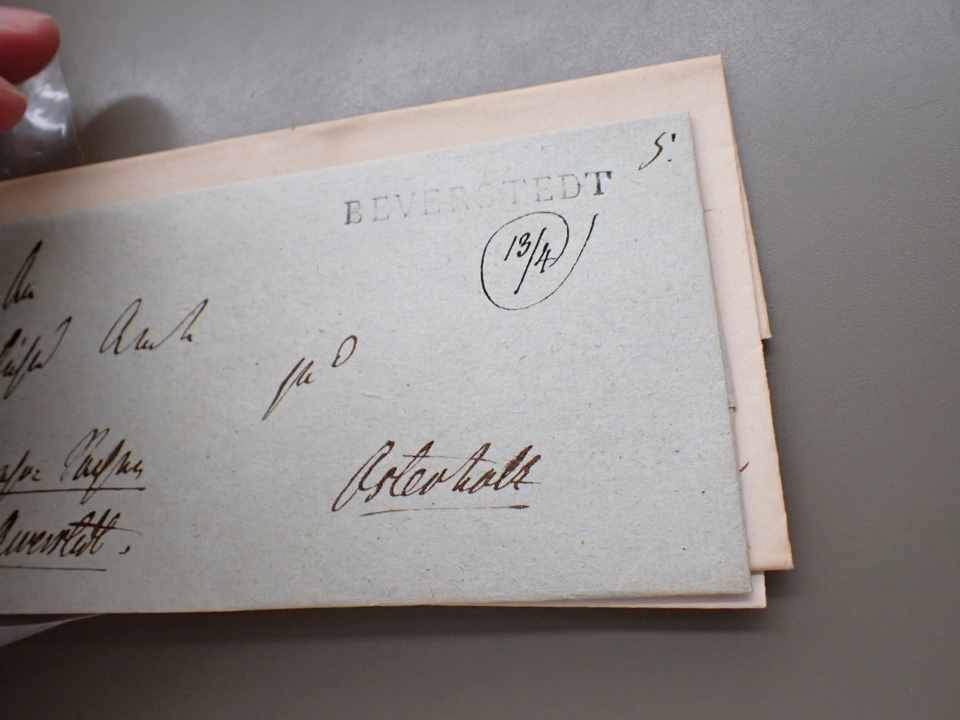 5.
BEVERSTEDT
13/4
An
Amt
zu
Osterholz
Beverstedt.